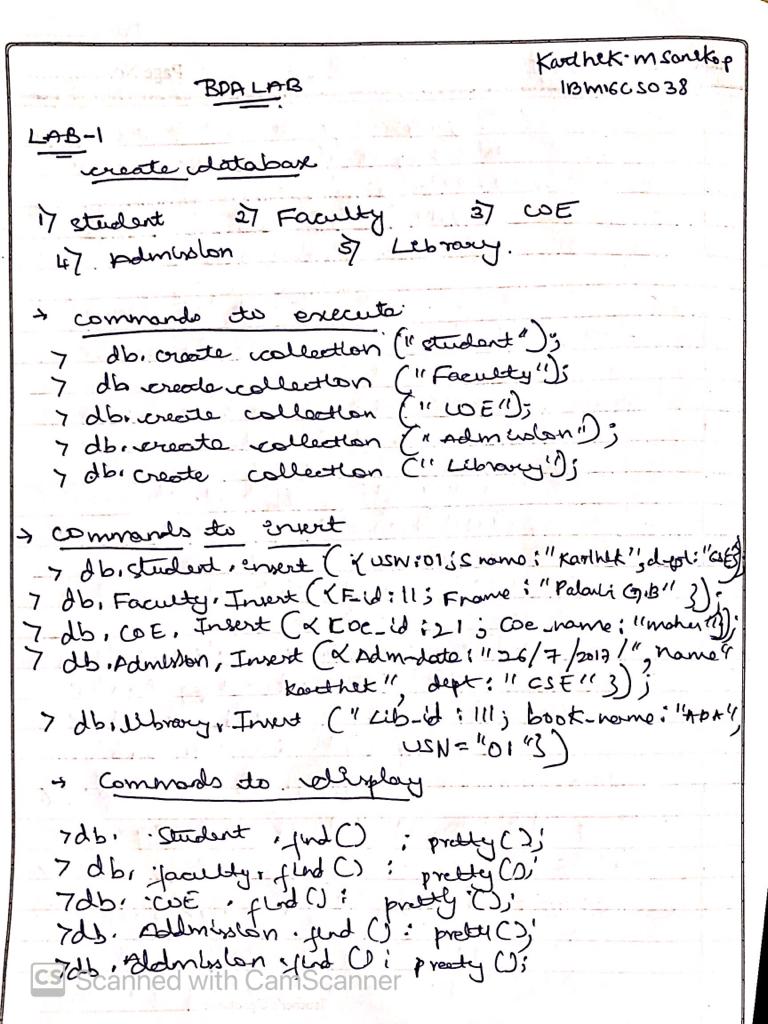 Karthik.M Sanekop
BDA LAB
1BM16CS038
LAB-1
create database
1) student 2) Faculty 3) COE
4) Admission 5) Library.
→ commands to execute
> db. create collection ("student");
> db create collection ("Faculty");
> db. create collection ("COE");
> db. create collection ("Admission");
> db. create collection ("Library");
→ commands to insert
> db.student.insert ({USN:01;Sname:"Karthik";dept:"CSE"});
> db. Faculty. Insert ({F-id:11; Fname : "Pallavi G.B" });
> db. COE. Insert ({Coe_id :21 ; Coe_name: "});
> db.Admission, Insert ({Adm-date: "26/7/2017/", name"
Karthik", dept: "CSE" });
> db.library. Insert ("Lib-id : 111; book-name: "ADA",
USN="01"})
→ Commands to display
>db. Student .find() ; pretty();
> db, faculty. find () : pretty ();
>db. COE . find () : pretty ();
>db. Addmission . find () : pretty ();
>db. Addmission .find () : preety ();
CS Scanned with CamScanner